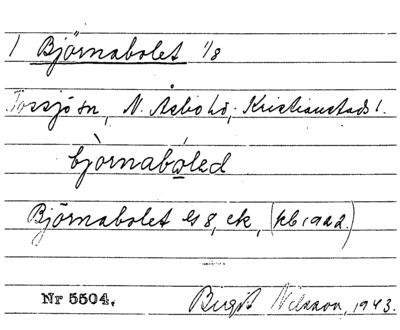 1 Björnabolet 1/8
Tossjö sn, N. Åsbo hd; Kristianstads l.
bjö̀rnabo̱led
Björnabolet 1/8, ek, (kb 1922.)
Nr 5504.
Birgit Nilsson, 1943.